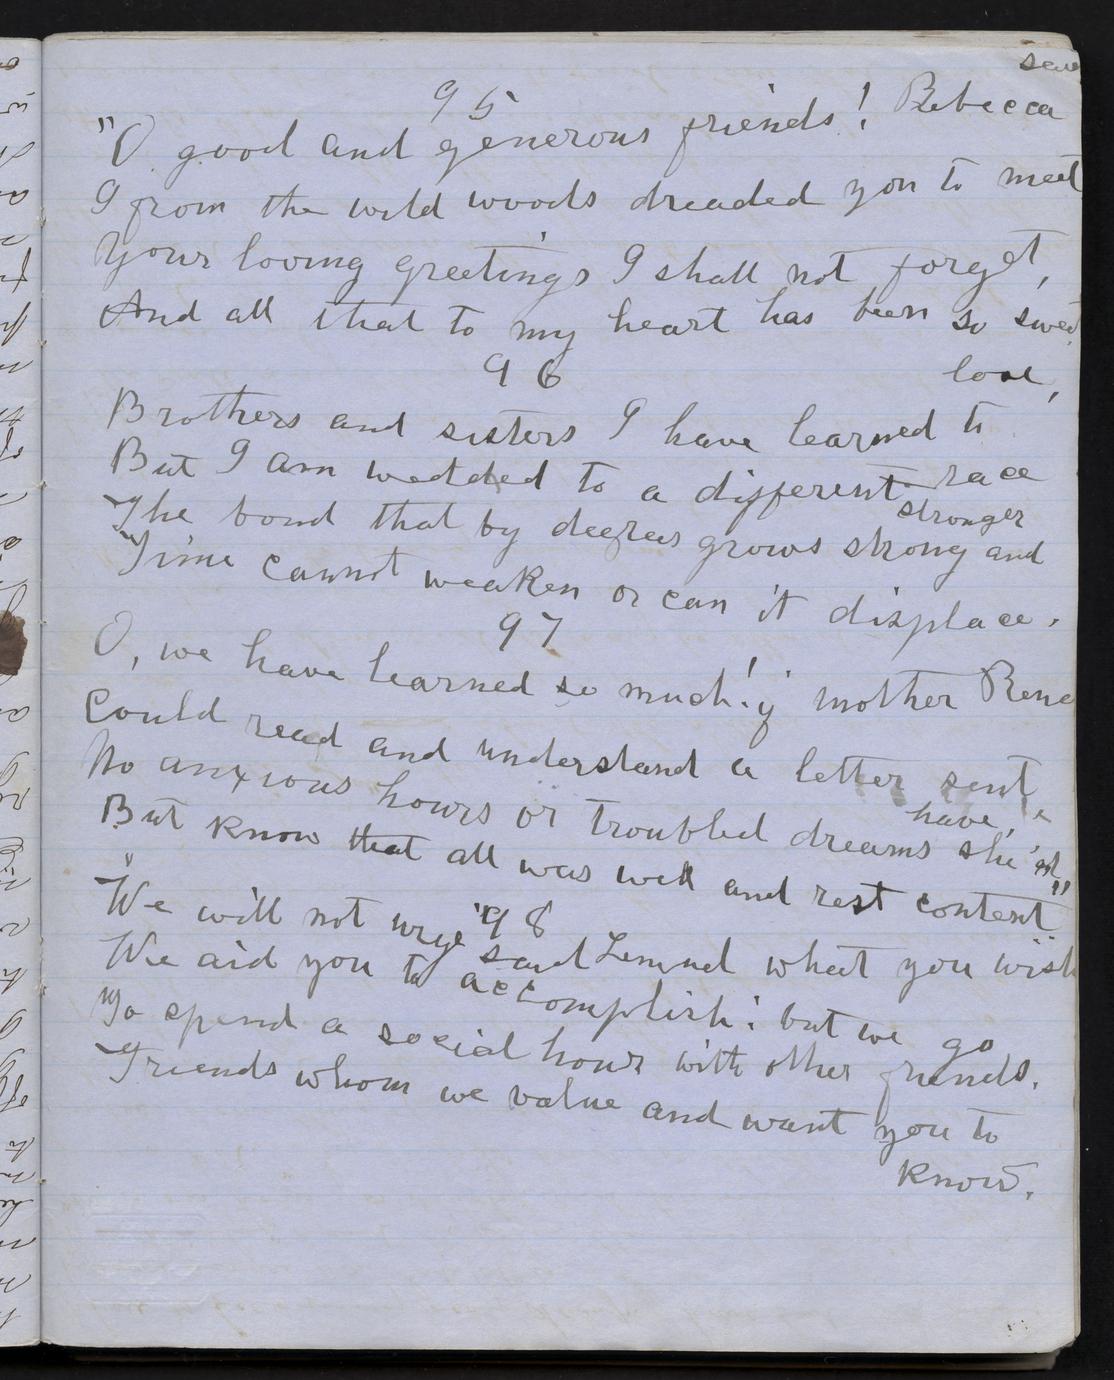 95
"O good and generous friends! Rebecca
I from the wild woods dreaded you to meet
Your loving greetings I shall not forget,
And all that to my heart has been so sweet
96
love,
Brothers and sisters I have learned to
But I am wedded to a different race
The bond that by degrees grows strong and stronger
Time cannot weaken or can it displace.
97
O, we have learned so much! if mother Rene
Could read and understand a letter sent
No anxious hours or troubled dreams she'd have,
But know that all was well and rest content"
98
"We will not urge" said Lemuel what you wish
We aid you to accomplish: but we go
To spend a social hour with other friends.
Friends whom we value and want you to
know.